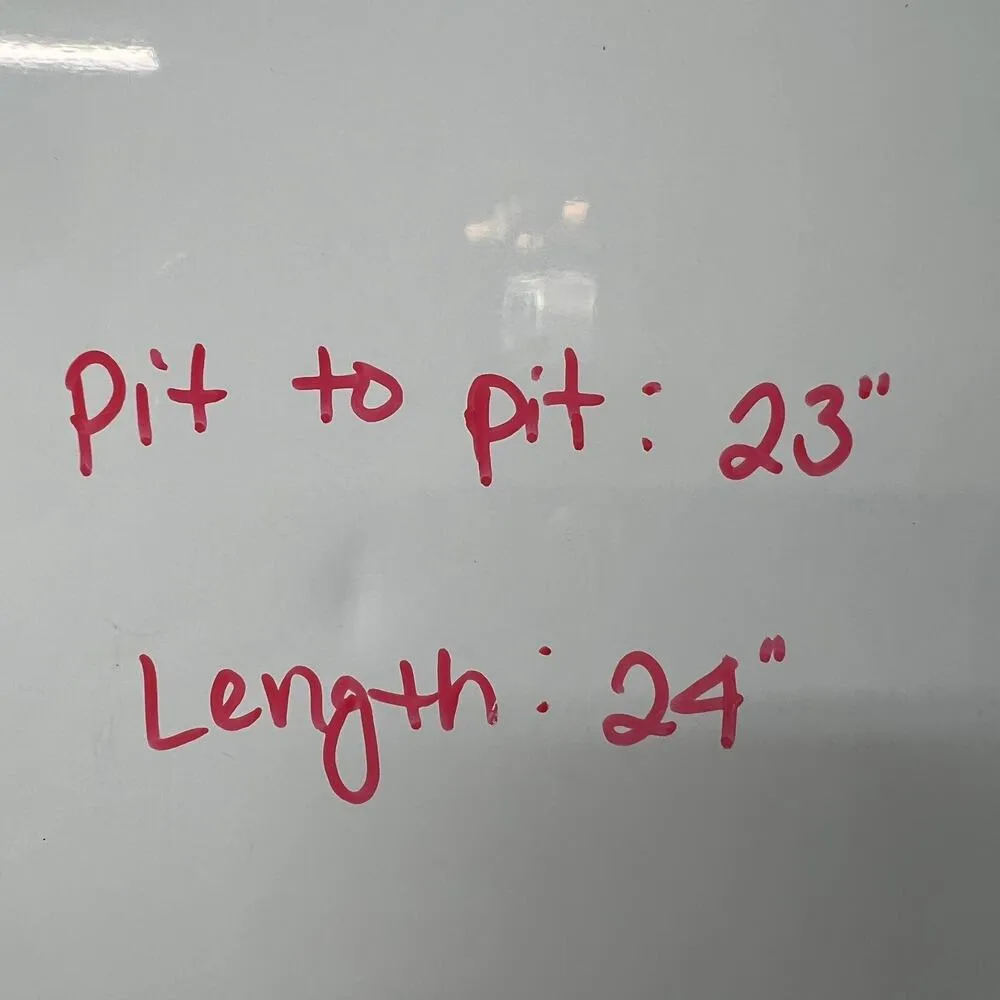 Pit to pit: 23"
Length: 24"